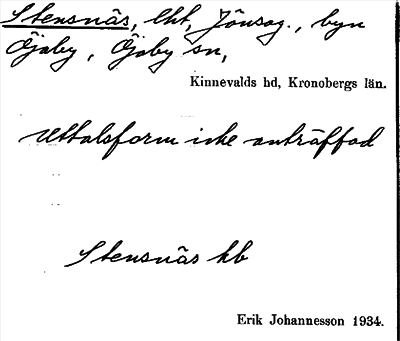 Stensnäs, lht, Jönsag., byn
Öjaby, Öjaby sn,
Kinnevalds hd, Kronobergs län.
uttalsform icke anträffad
Stensnäs hb
Erik Johannesson 1934.